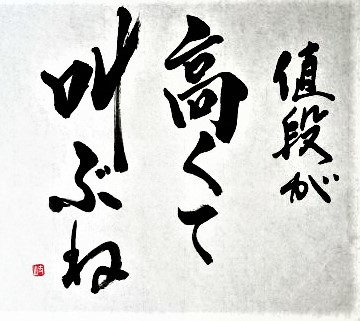 値段が
高くて
叫ぶね